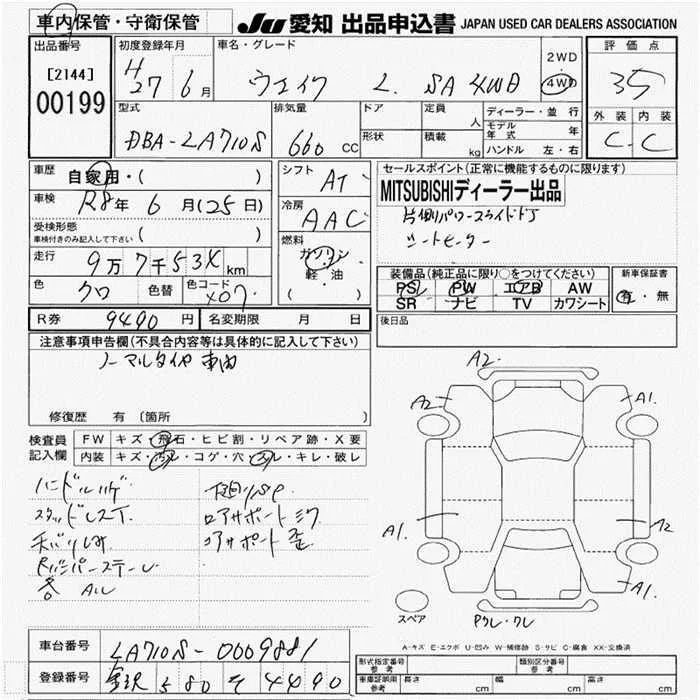 車内保管・守衛保管
JU 愛知 出品申込書 JAPAN USED CAR DEALERS ASSOCIATION
出品番号 初度登録年月 車名・グレード 評価点
[2144]
00199
H27 6月
L. SA 4WD
2WD
4WD
35
外装 内装
C C
型式 排気量 ドア 定員 人 ディーラー・並行
DBA-LA710S 660 cc
形状 積載 kg
モデル年式 年
ハンドル 左・右
車歴 自家用・( )
シフト AT
セールスポイント(正常に機能するものに限ります)
MITSUBISHIディーラー出品
片側パワースライドドア
シートヒーター
車検 R8年 6月(25日)
冷房 AAC
受検形態
車検付きのみ記入して下さい ( )
燃料 ガソリン
軽・油
( )
走行 9万7千53X km
色 クロ 色替 色コード X07
装備品(純正品に限り○をつけてください)
PS PW エアB AW
SR ナビ TV カワシート
新車保証書
有・無
R券 9490円 名変期限 月 日
後日品
注意事項申告欄(不具合内容等は具体的に記入して下さい)
ノーマルタイヤ 車内
修復歴 有 〔箇所
検査員記入欄
FW キズ・飛石・ヒビ割・リペア跡・X要
内装 キズ・汚レ・コゲ・穴・スレ・キレ・破レ
ハンドルハゲ
スタッドレスT
下廻りサビ
コアサポートミワ
コアサポート歪
各 AU
A2
A2
A1.
A1.
A2
A1.
スペア
A-キズ E-エクボ U-凹み W-補修跡 S-サビ C-腐食 XX-交換済
車台番号 LA710S-0009881
登録番号 金沢 580 そ 4490
形式指定番号 参考
類別区分番号 参考
車庫証明用 参考 長さ cm 幅 cm 高さ cm